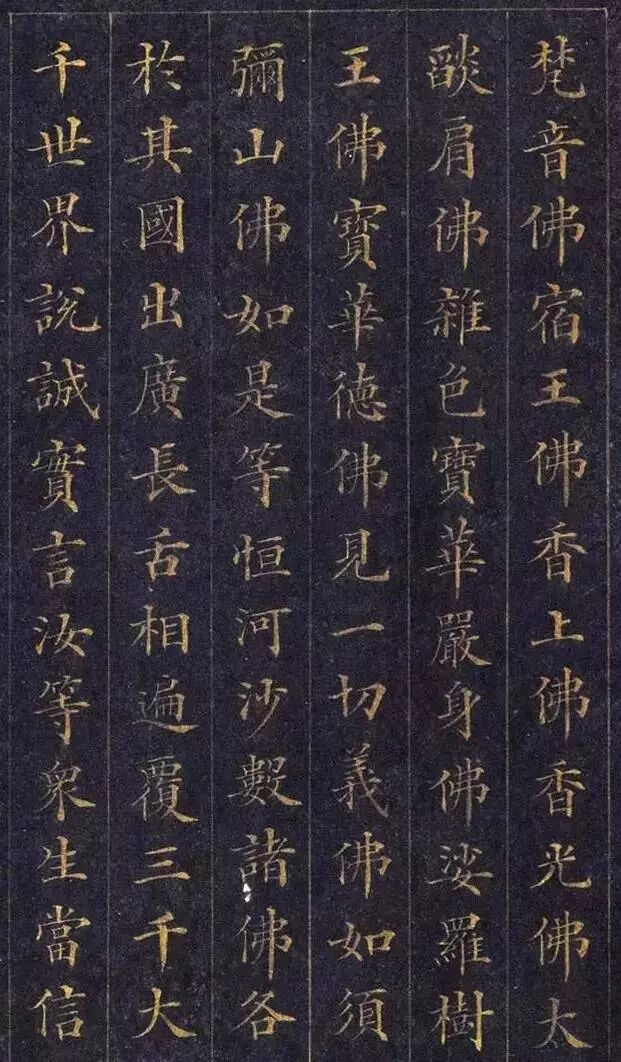 梵音佛宿王佛香上佛香光佛大
燄肩佛雜色寶華嚴身佛娑羅樹
王佛寶華德佛見一切義佛如須
彌山佛如是等恒河沙數諸佛各
於其國出廣長舌相遍覆三千大
千世界說誠實言汝等眾生當信